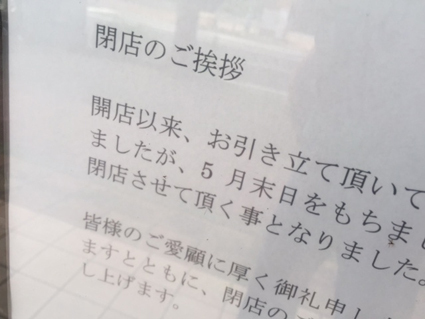 閉店のご挨拶
開店以来、お引き立て頂いて
ましたが、5月末日をもちまし
閉店させて頂く事となりました。
皆様のご愛顧に厚く御礼申し上
ますとともに、閉店の
し上げます。